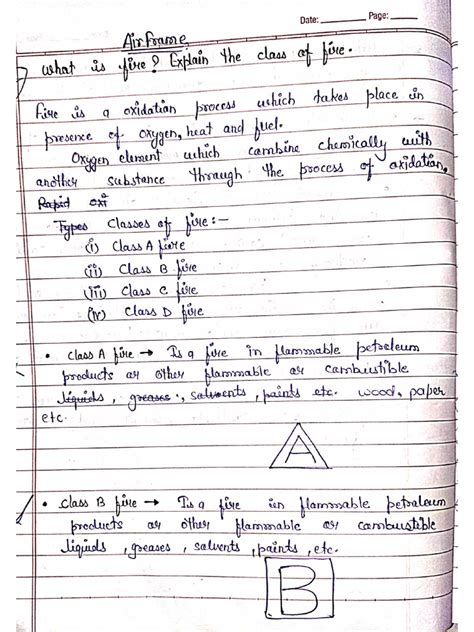 Date: ______ Page: ____
Airframe
What is fire? Explain the class of fire.
Fire is a oxidation process which takes place in
presence of oxygen, heat and fuel.
Oxygen element which combine chemically with
another substance through the process of oxidation.
Rapid oxi
Types Classes of fire :-
(i) Class A fire
(ii) Class B fire
(iii) Class C fire
(iv) Class D fire
• Class A fire → Is a fire in flammable petroleum
products or other flammable or combustible
liquids, greases, solvents, paints etc. wood, paper
etc.
A
• Class B fire → Is a fire in flammable petroleum
products or other flammable or combustible
liquids, greases, solvents, paints, etc.
B